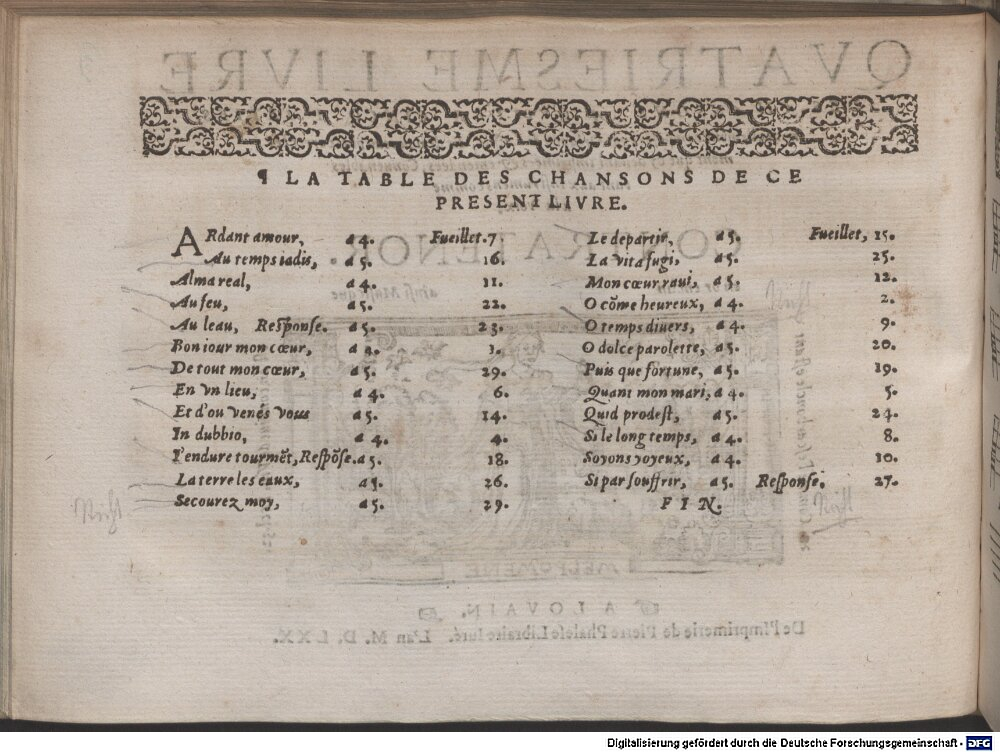 ¶ LA TABLE DES CHANSONS DE CE
PRESENT LIVRE.
ARdant amour, a 4. Fueillet. 7.
Au temps iadis, a 5. 16.
Alma real, a 4. 11.
Au feu, a 5. 22.
Au leau, Response. a 5. 23.
Bon iour mon cœur, a 4. 3.
De tout mon cœur, a 5. 29.
En vn lieu, a 4. 6.
Et d'ou venes vous a 5. 14.
In dubbio, a 4. 4.
I'endure tourmēt, Respōse. a 5. 18.
La terre les eaux, a 5. 26.
Secourez moy, a 5. 29.
Le departir, a 5. Fueillet, 15.
La vita fugi, a 5. 25.
Mon cœur raui, a 5. 12.
O cōme heureux, a 4. 2.
O temps diuers, a 4. 9.
O dolce parolette, a 5. 20.
Puis que fortune, a 5. 19.
Quant mon mari, a 4. 5.
Quid prodest, a 5. 24.
Si le long temps, a 4. 8.
Soyons yoyeux, a 4. 10.
Si par souffrir, a 5. Response. 27.
FIN.
Digitalisierung gefördert durch die Deutsche Forschungsgemeinschaft - DFG